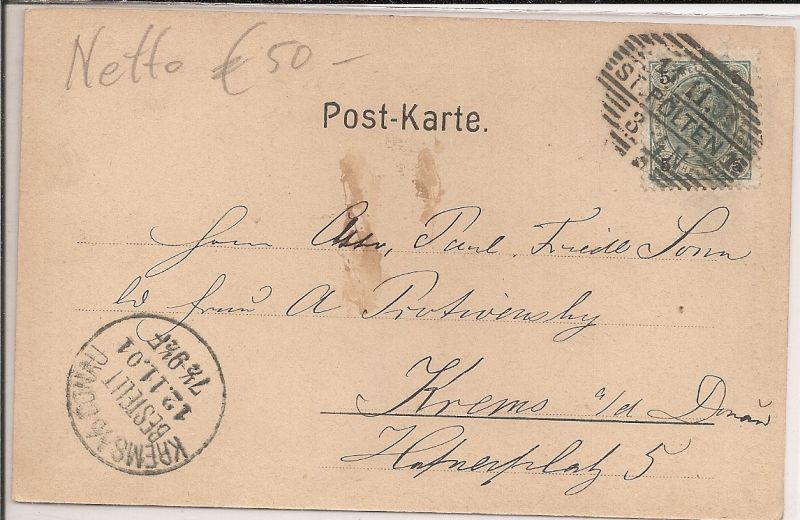 Netto € 50 -
Post-Karte.
ST. PÖLTEN
11.
3 N
5 5
5 5
Paul. Friedl
A Protivensky
Krems a/d Donau
Hafnerplatz 5
KREMS A/D DONAU
BESTELLT
12.11.01
7½-9½F